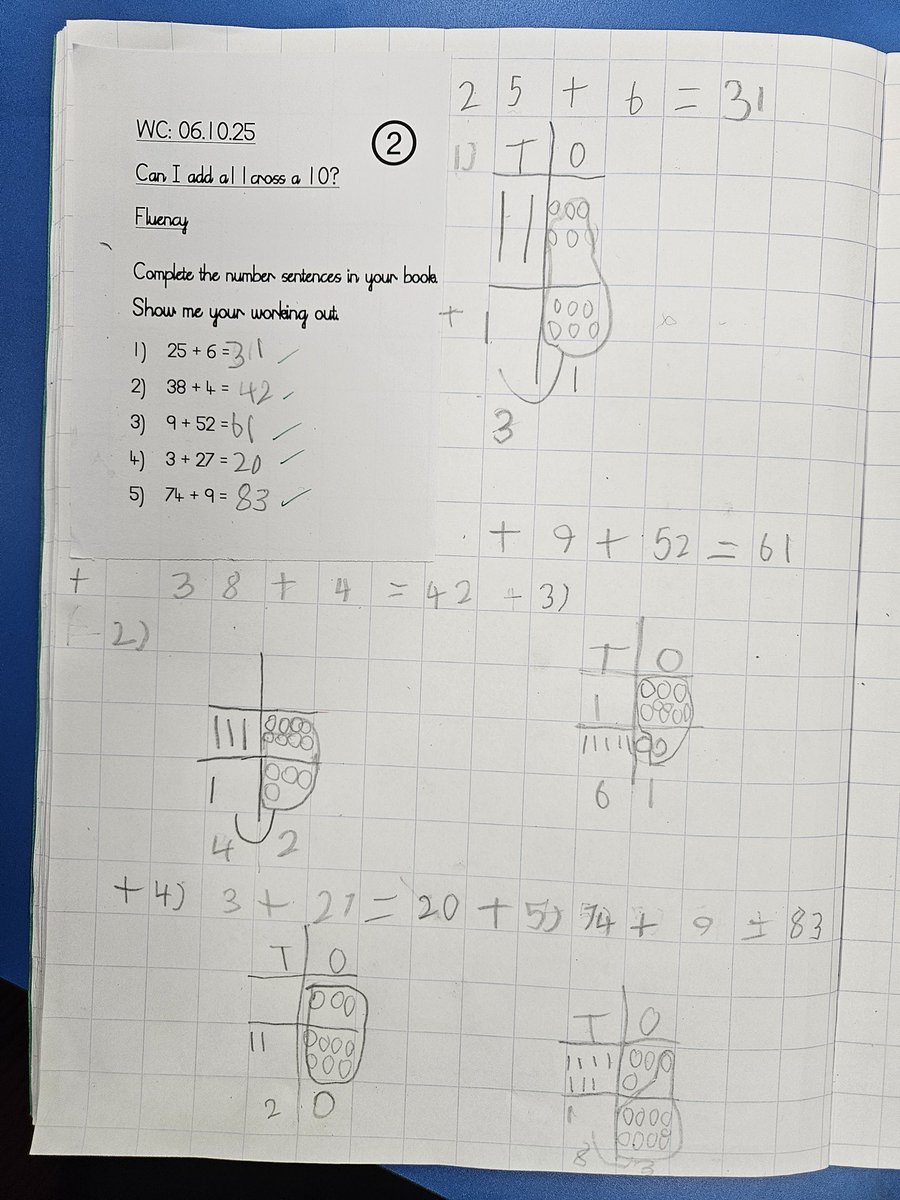 WC: 06.10.25
2
Can I add a 1 across a 10?
Fluency
Complete the number sentences in your book.
Show me your working out.
1) 25 + 6 = 311
2) 38 + 4 = 42
3) 9 + 52 = 61
4) 3 + 27 = 20
5) 74 + 9 = 83
25 + 6 = 31
1) T O
+ 1
1
3
+ 9 + 52 = 61
+ 38 + 4 = 42 - 3)
2)
T O
6 1
4 2
+ 4) 3 + 27 = 20 + 5) 74 + 9 = 83
T O
2 0
T O
8 3